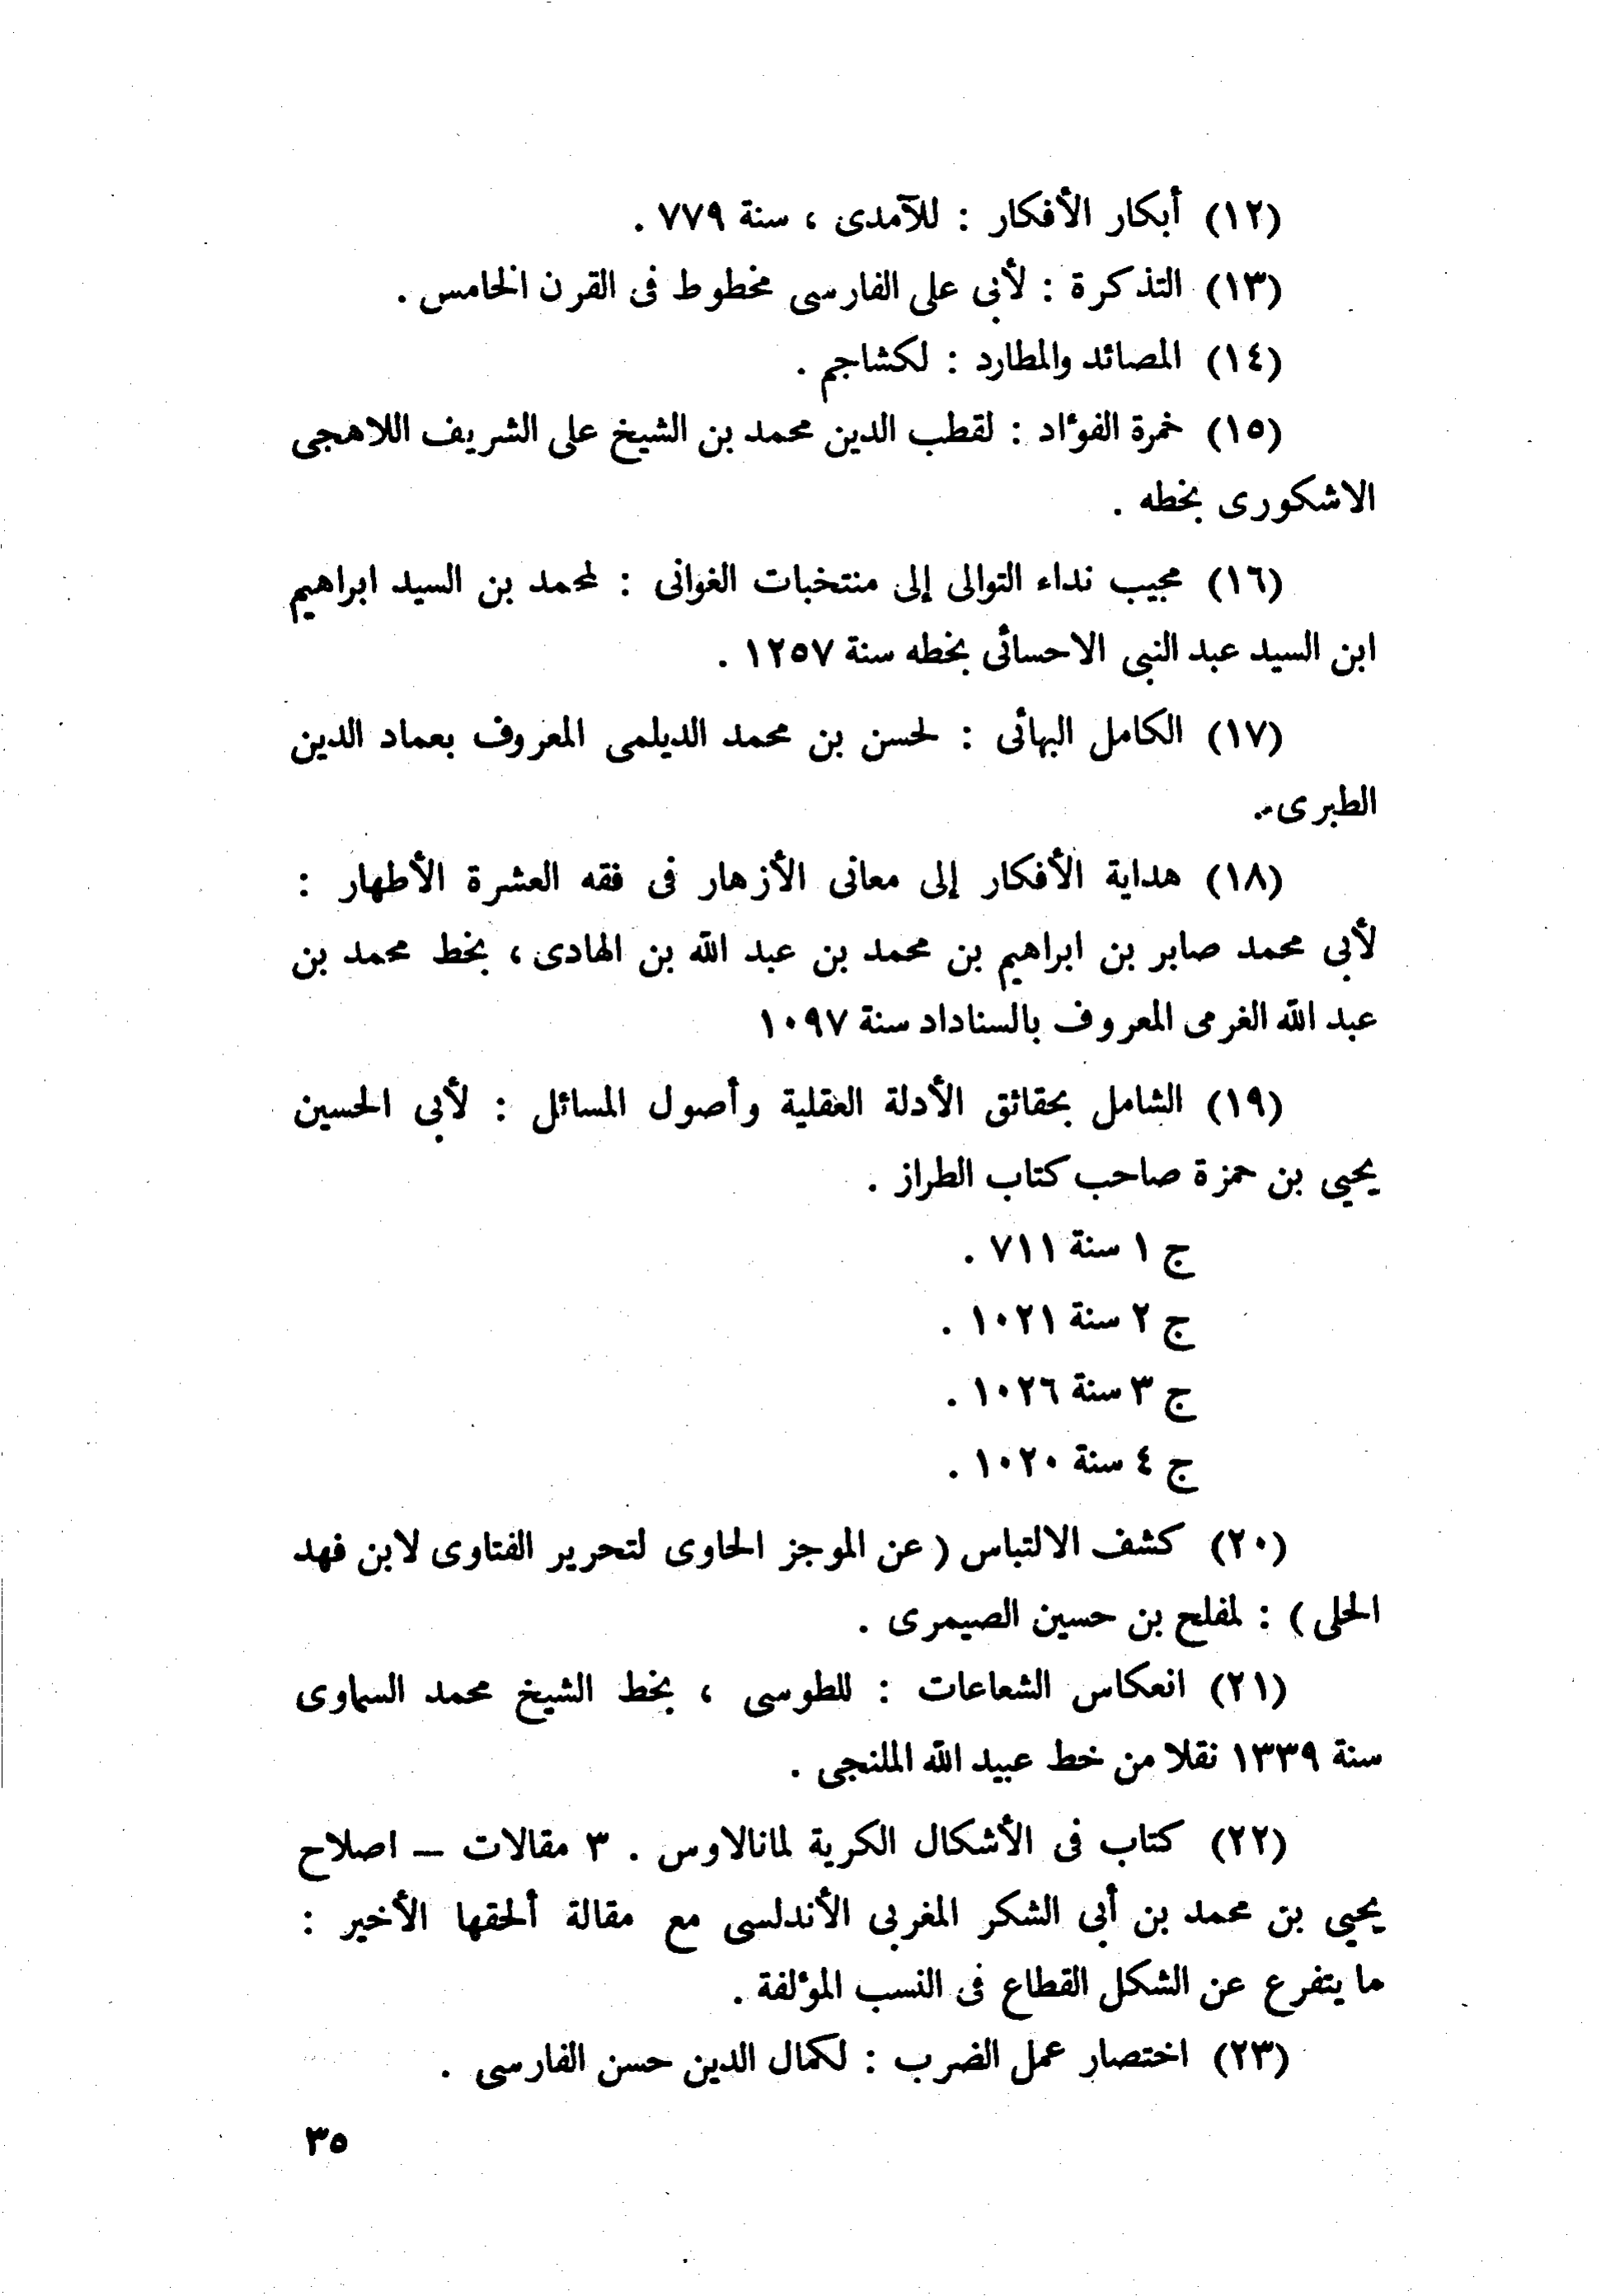 (١٢) أبكار الأفكار : للآمدى ، سنة ٧٧٩ .
(١٣) التذكرة : لأبى على الفارسى مخطوط فى القرن الخامس .
(١٤) المصائد والمطارد : لكشاجم .
(١٥) خمرة الفؤاد : لقطب الدين محمد بن الشيخ على الشريف اللاهجى
الاشكورى بخطه .
(١٦) مجيب نداء التوالى إلى منتخبات الغوانى : لمحمد بن السيد ابراهيم
ابن السيد عبد النبى الاحسائى بخطه سنة ١٢٥٧ .
(١٧) الكامل البهائى : لحسن بن محمد الديلمى المعروف بعماد الدين
الطبرى .
(١٨) هداية الأفكار إلى معانى الأزهار فى فقه العشرة الأطهار :
لأبى محمد صابر بن ابراهيم بن محمد بن عبد الله بن الهادى ، بخط محمد بن
عبد الله الغرمى المعروف بالسناداد سنة ١٠٩٧
(١٩) الشامل بحقائق الأدلة العقلية وأصول المسائل : لأبى الحسين
يحيى بن حمزة صاحب كتاب الطراز .
ج ١ سنة ٧١١ .
ج ٢ سنة ١٠٢١ .
ج ٣ سنة ١٠٢٦ .
ج ٤ سنة ١٠٢٠ .
(٢٠) كشف الالتباس ( عن الموجز الحاوى لتحرير الفتاوى لابن فهد
الحلى ) : لمفلح بن حسين الصيمرى .
(٢١) انعكاس الشعاعات : للطوسى ، بخط الشيخ محمد السماوى
سنة ١٣٣٩ نقلا من خط عبيد الله الملنجى .
(٢٢) كتاب فى الأشكال الكرية لمانالاوس . ٣ مقالات – اصلاح
يحيى بن محمد بن أبى الشكر المغربى الأندلسى مع مقالة ألحقها الأخير :
ما يتفرع عن الشكل القطاع فى النسب المؤلفة .
(٢٣) اختصار عمل الضرب : لكمال الدين حسن الفارسى .
٣٥